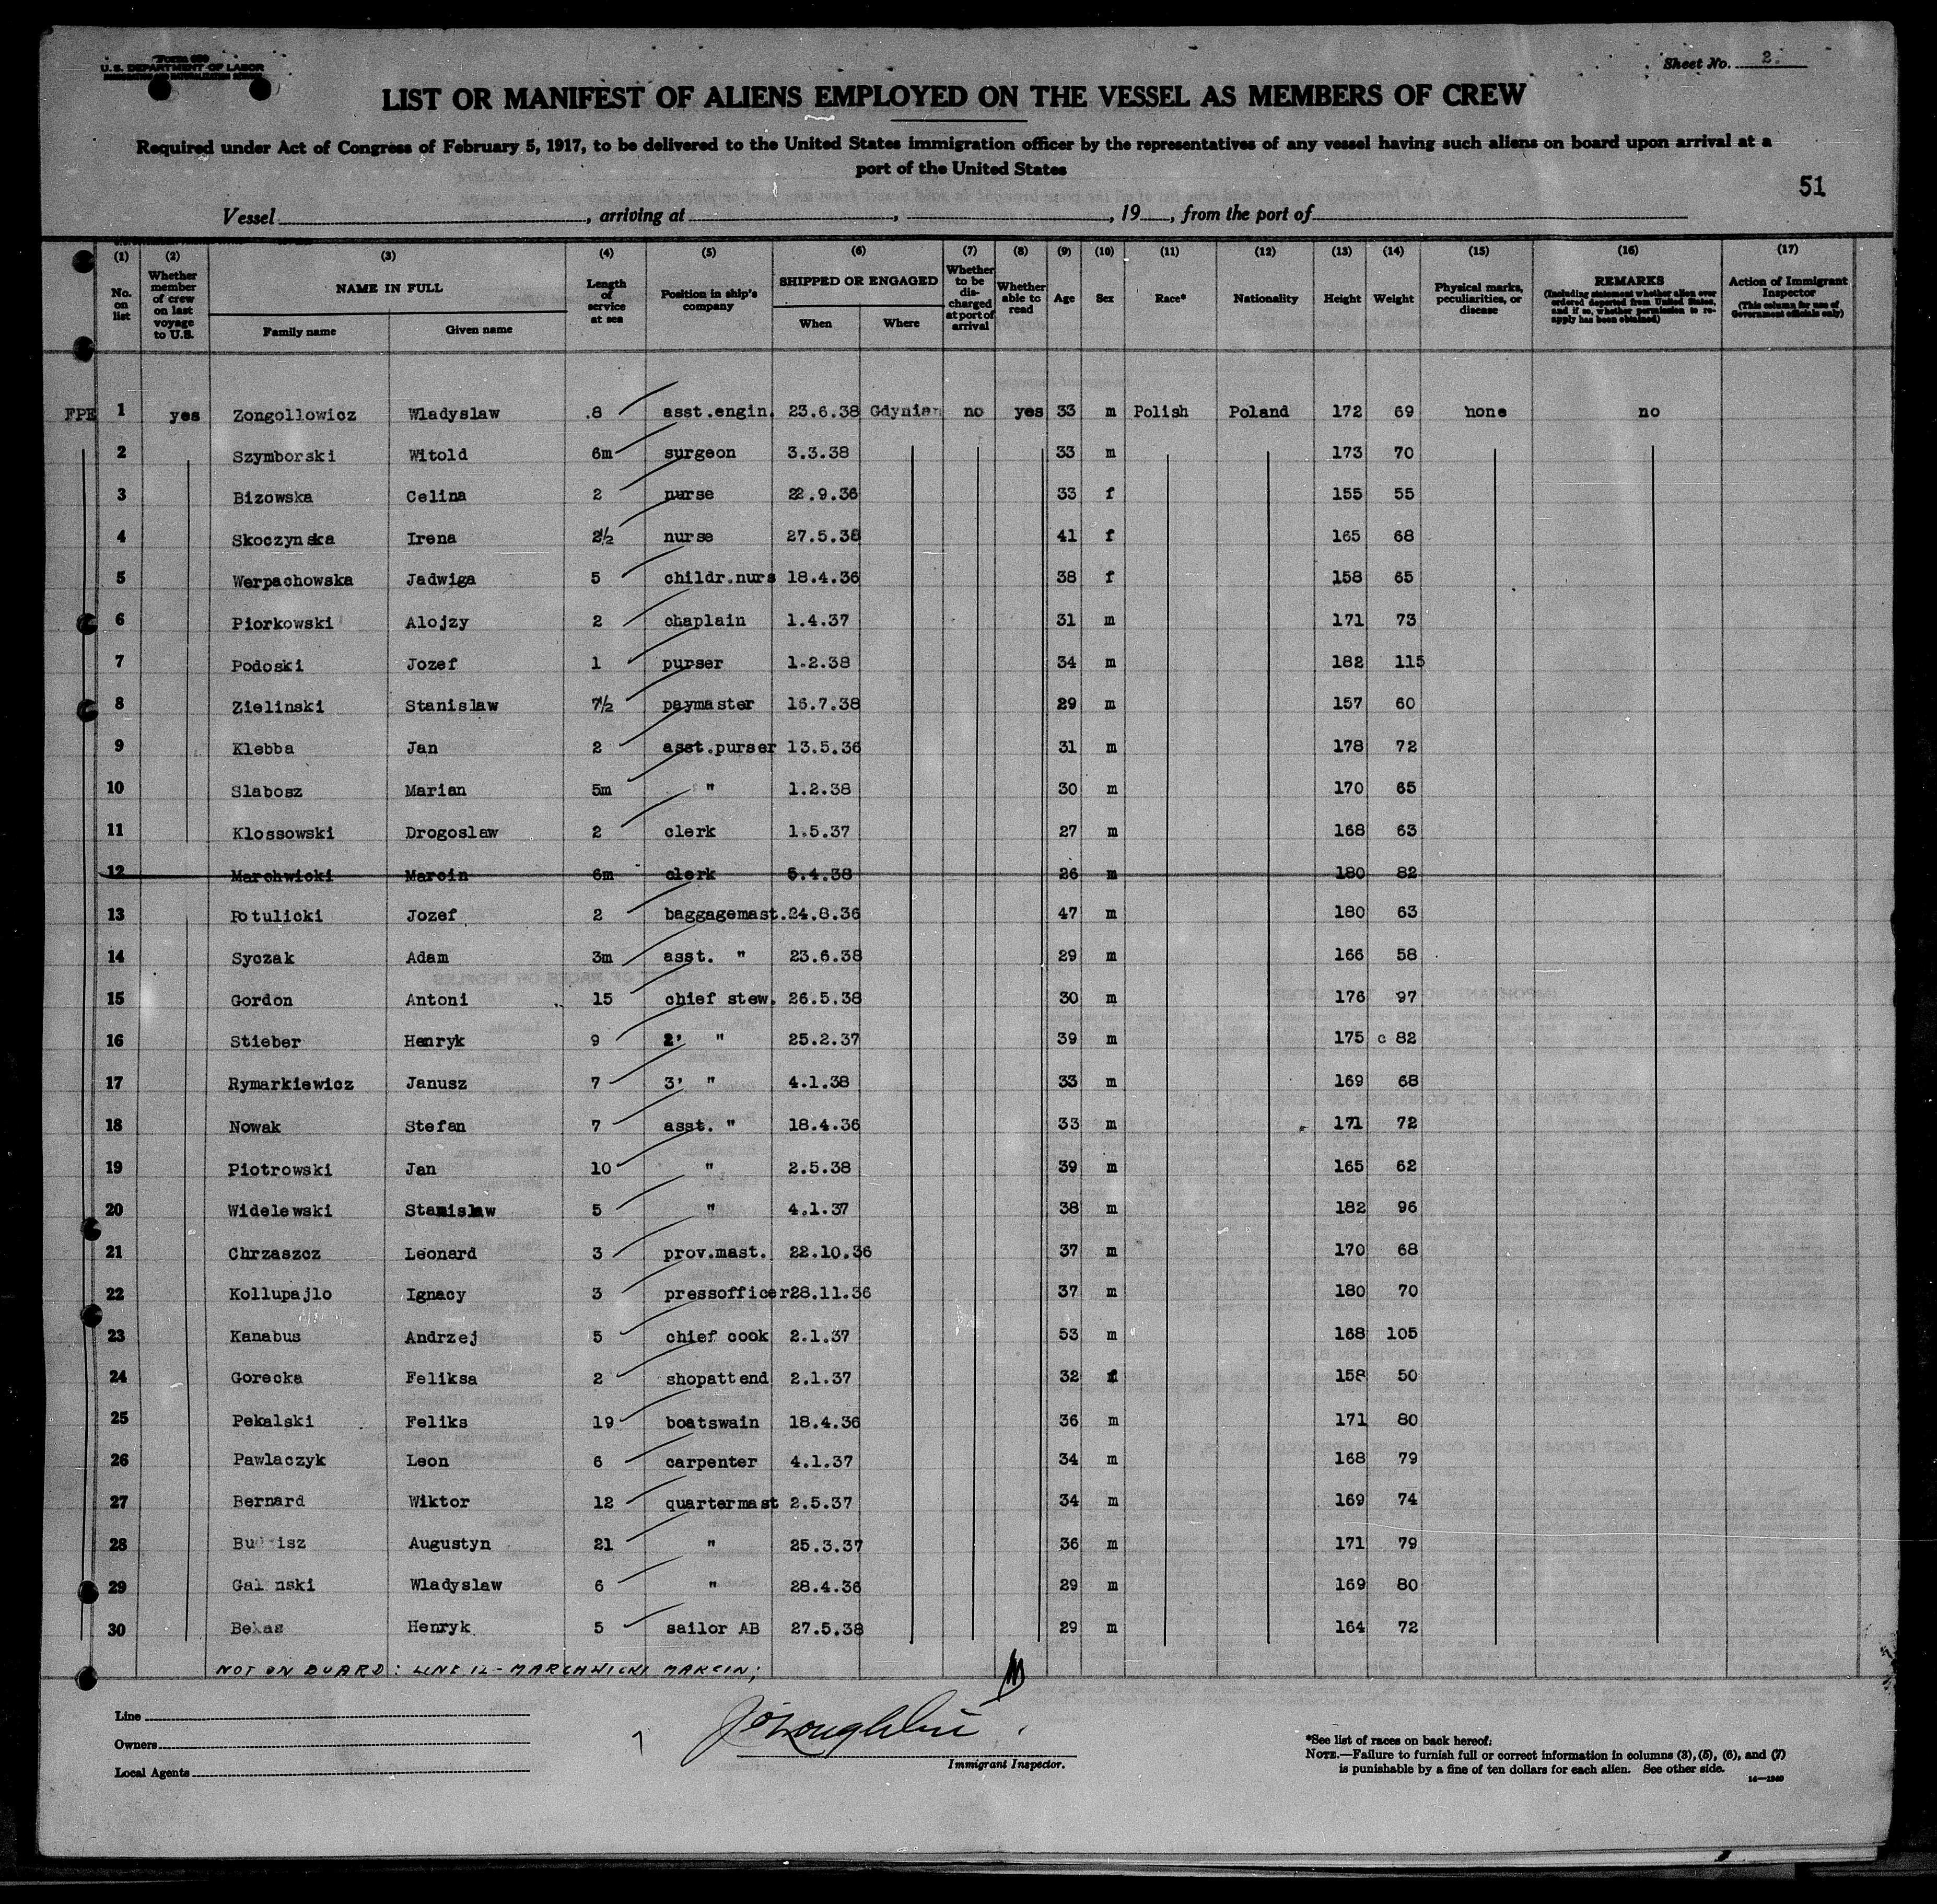 U.S. DEPARTMENT OF LABOR
Sheet No. 2.
LIST OR MANIFEST OF ALIENS EMPLOYED ON THE VESSEL AS MEMBERS OF CREW
Required under Act of Congress of February 5, 1917, to be delivered to the United States immigration officer by the representatives of any vessel having such aliens on board upon arrival at a
port of the United States
51
Vessel , arriving at , , 19 , from the port of
(1) (2) (3) (4) (5) (6) (7) (8) (9) (10) (11) (12) (13) (14) (15) (16) (17)
No. on list Whether member of crew on last voyage to U.S. NAME IN FULL Family name Given name Length of service at sea Position in ship's company SHIPPED OR ENGAGED When Where Whether to be discharged at port of arrival Whether able to read Age Sex Race* Nationality Height Weight Physical marks, peculiarities, or disease REMARKS (Including statement whether alien ever ordered deported from United States, and if so, whether permission to re-apply has been obtained) Action of Immigrant Inspector (This column for use of Government officials only)
FPE 1 yes Zongollowicz Wladyslaw .8 asst.engin. 23.6.38 Gdynian no yes 33 m Polish Poland 172 69 none no
2 Szymborski Witold 6m surgeon 3.3.38 33 m 173 70
3 Bizowska Celina 2 nurse 22.9.36 33 f 155 55
4 Skoczynska Irena 2½ nurse 27.5.38 41 f 165 68
5 Werpachowska Jadwiga 5 childr.nurs 18.4.36 38 f 158 65
6 Piorkowski Alojzy 2 chaplain 1.4.37 31 m 171 73
7 Podoski Jozef 1 purser 1.2.38 34 m 182 115
8 Zielinski Stanislaw 7½ paymaster 16.7.38 29 m 157 60
9 Klebba Jan 2 asst.purser 13.5.36 31 m 178 72
10 Slabosz Marian 5m " 1.2.38 30 m 170 65
11 Klossowski Drogoslaw 2 clerk 1.5.37 27 m 168 63
12 Marchwicki Marcin 6m clerk 5.4.38 26 m 180 82
13 Potulicki Jozef 2 baggagemast. 24.8.36 47 m 180 63
14 Syczak Adam 3m asst. " 23.6.38 29 m 166 58
15 Gordon Antoni 15 chief stew. 26.5.38 30 m 176 97
16 Stieber Henryk 9 2' " 25.2.37 39 m 175 c 82
17 Rymarkiewicz Janusz 7 3' " 4.1.38 33 m 169 68
18 Nowak Stefan 7 asst. " 18.4.36 33 m 171 72
19 Piotrowski Jan 10 " 2.5.38 39 m 165 62
20 Widelewski Stanislaw 5 " 4.1.37 38 m 182 96
21 Chrzaszcz Leonard 3 prov.mast. 22.10.36 37 m 170 68
22 Kollupajlo Ignacy 3 pressofficer 28.11.36 37 m 180 70
23 Kanabus Andrzej 5 chief cook 2.1.37 53 m 168 105
24 Gorecka Feliksa 2 shopattend 2.1.37 32 f 158 50
25 Pekalski Feliks 19 boatswain 18.4.36 36 m 171 80
26 Pawlaczyk Leon 6 carpenter 4.1.37 34 m 168 79
27 Bernard Wiktor 12 quartermast 2.5.37 34 m 169 74
28 Augustyn 21 " 25.3.37 36 m 171 79
29 Wladyslaw 6 " 28.4.36 29 m 169 80
30 Bekas Henryk 5 sailor AB 27.5.38 29 m 164 72
NOT ON BOARD: LINE 12 - MARCHWICKI MARCIN;
Line
Owners
Local Agents
Immigrant Inspector.
*See list of races on back hereof.
NOTE.—Failure to furnish full or correct information in columns (3), (5), (6), and (7)
is punishable by a fine of ten dollars for each alien. See other side.
14—1240